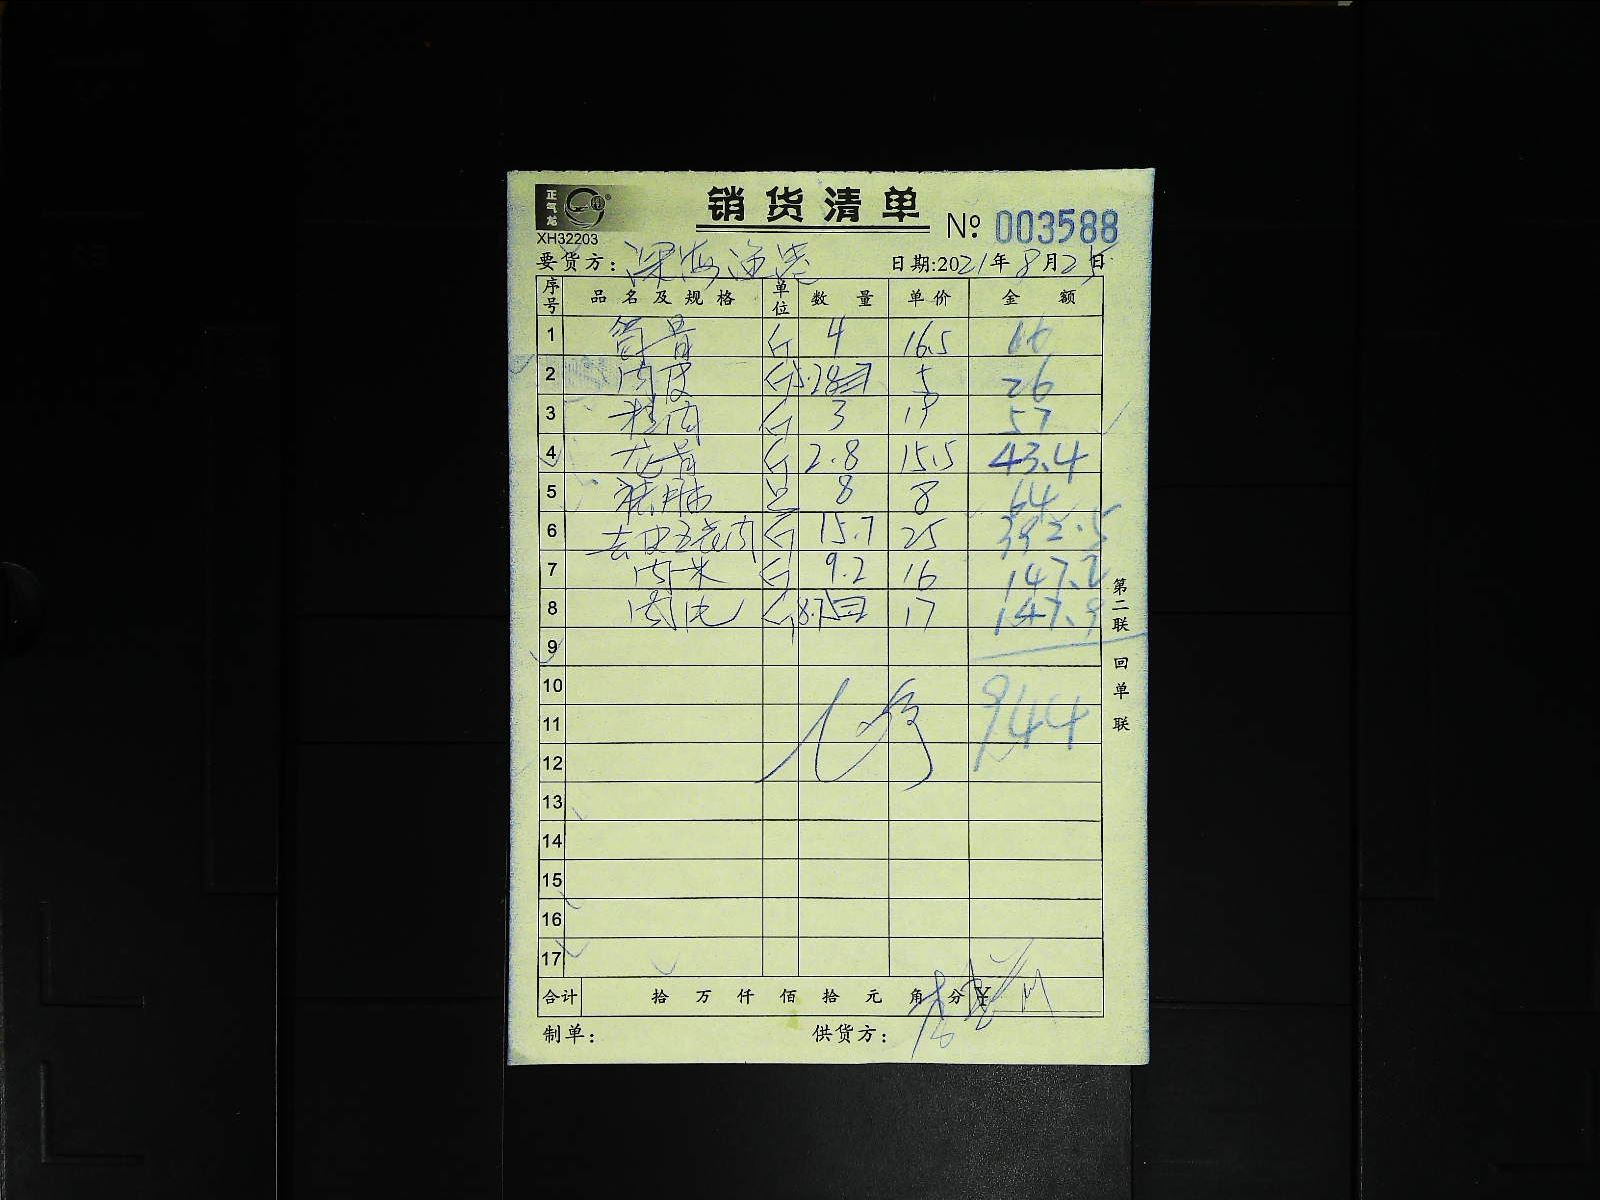 正气龙
销货清单
XH32203
№ 003588
要货方: 深海渔港
日期:2021年8月25日
序号 品名及规格 单位 数量 单价 金额
1 筒骨 斤 4 16.5 66
2 肉皮 斤 5.28 5 26
3 精肉 斤 3 19 57
4 龙骨 斤 2.8 15.5 43.4
5 猪脑 只 8 8 64
6 去皮五花肉 斤 15.7 25 392.5
7 肉米 斤 9.2 16 147.2
8 斤 8.7 17 147.9
9
10
944
11
12
13
14
15
16
17
合计 拾 万 仟 佰 拾 元 角 分 ¥
制单: 供货方:
第二联 回单联